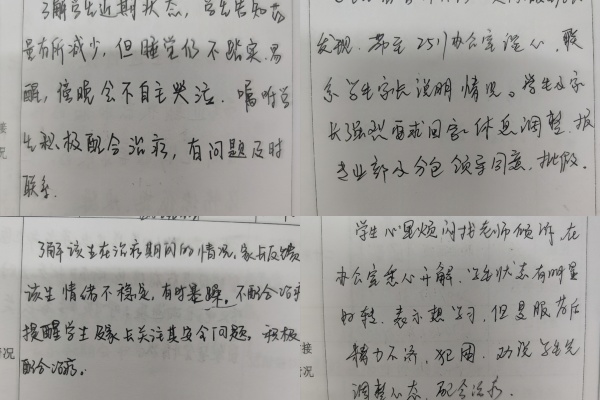 了解学生近期状态，学生告知药
量有所减少，但睡觉仍不踏实，易
醒，傍晚会不自主哭泣．嘱咐学
生积极配合治疗，有问题及时
联系．
接
况
发现．带至251办公室谈心，联
系学生家长说明情况。学生及家
长强烈要求回家休息调整．报
专业部及分包领导同意，批假．
了解该生在治疗期间的情况，家长反馈
该生情绪不稳定，有时暴躁，不配合治疗
提醒学生及家长关注其安全问题，积极
配合治疗。
情况
学生心里烦闷找老师倾诉，在
办公室悉心开解．学生状态有明显
好转．表示想学习，但是服药后
精力不济，犯困．劝说学生先
调整心态，配合治疗．
接
情况